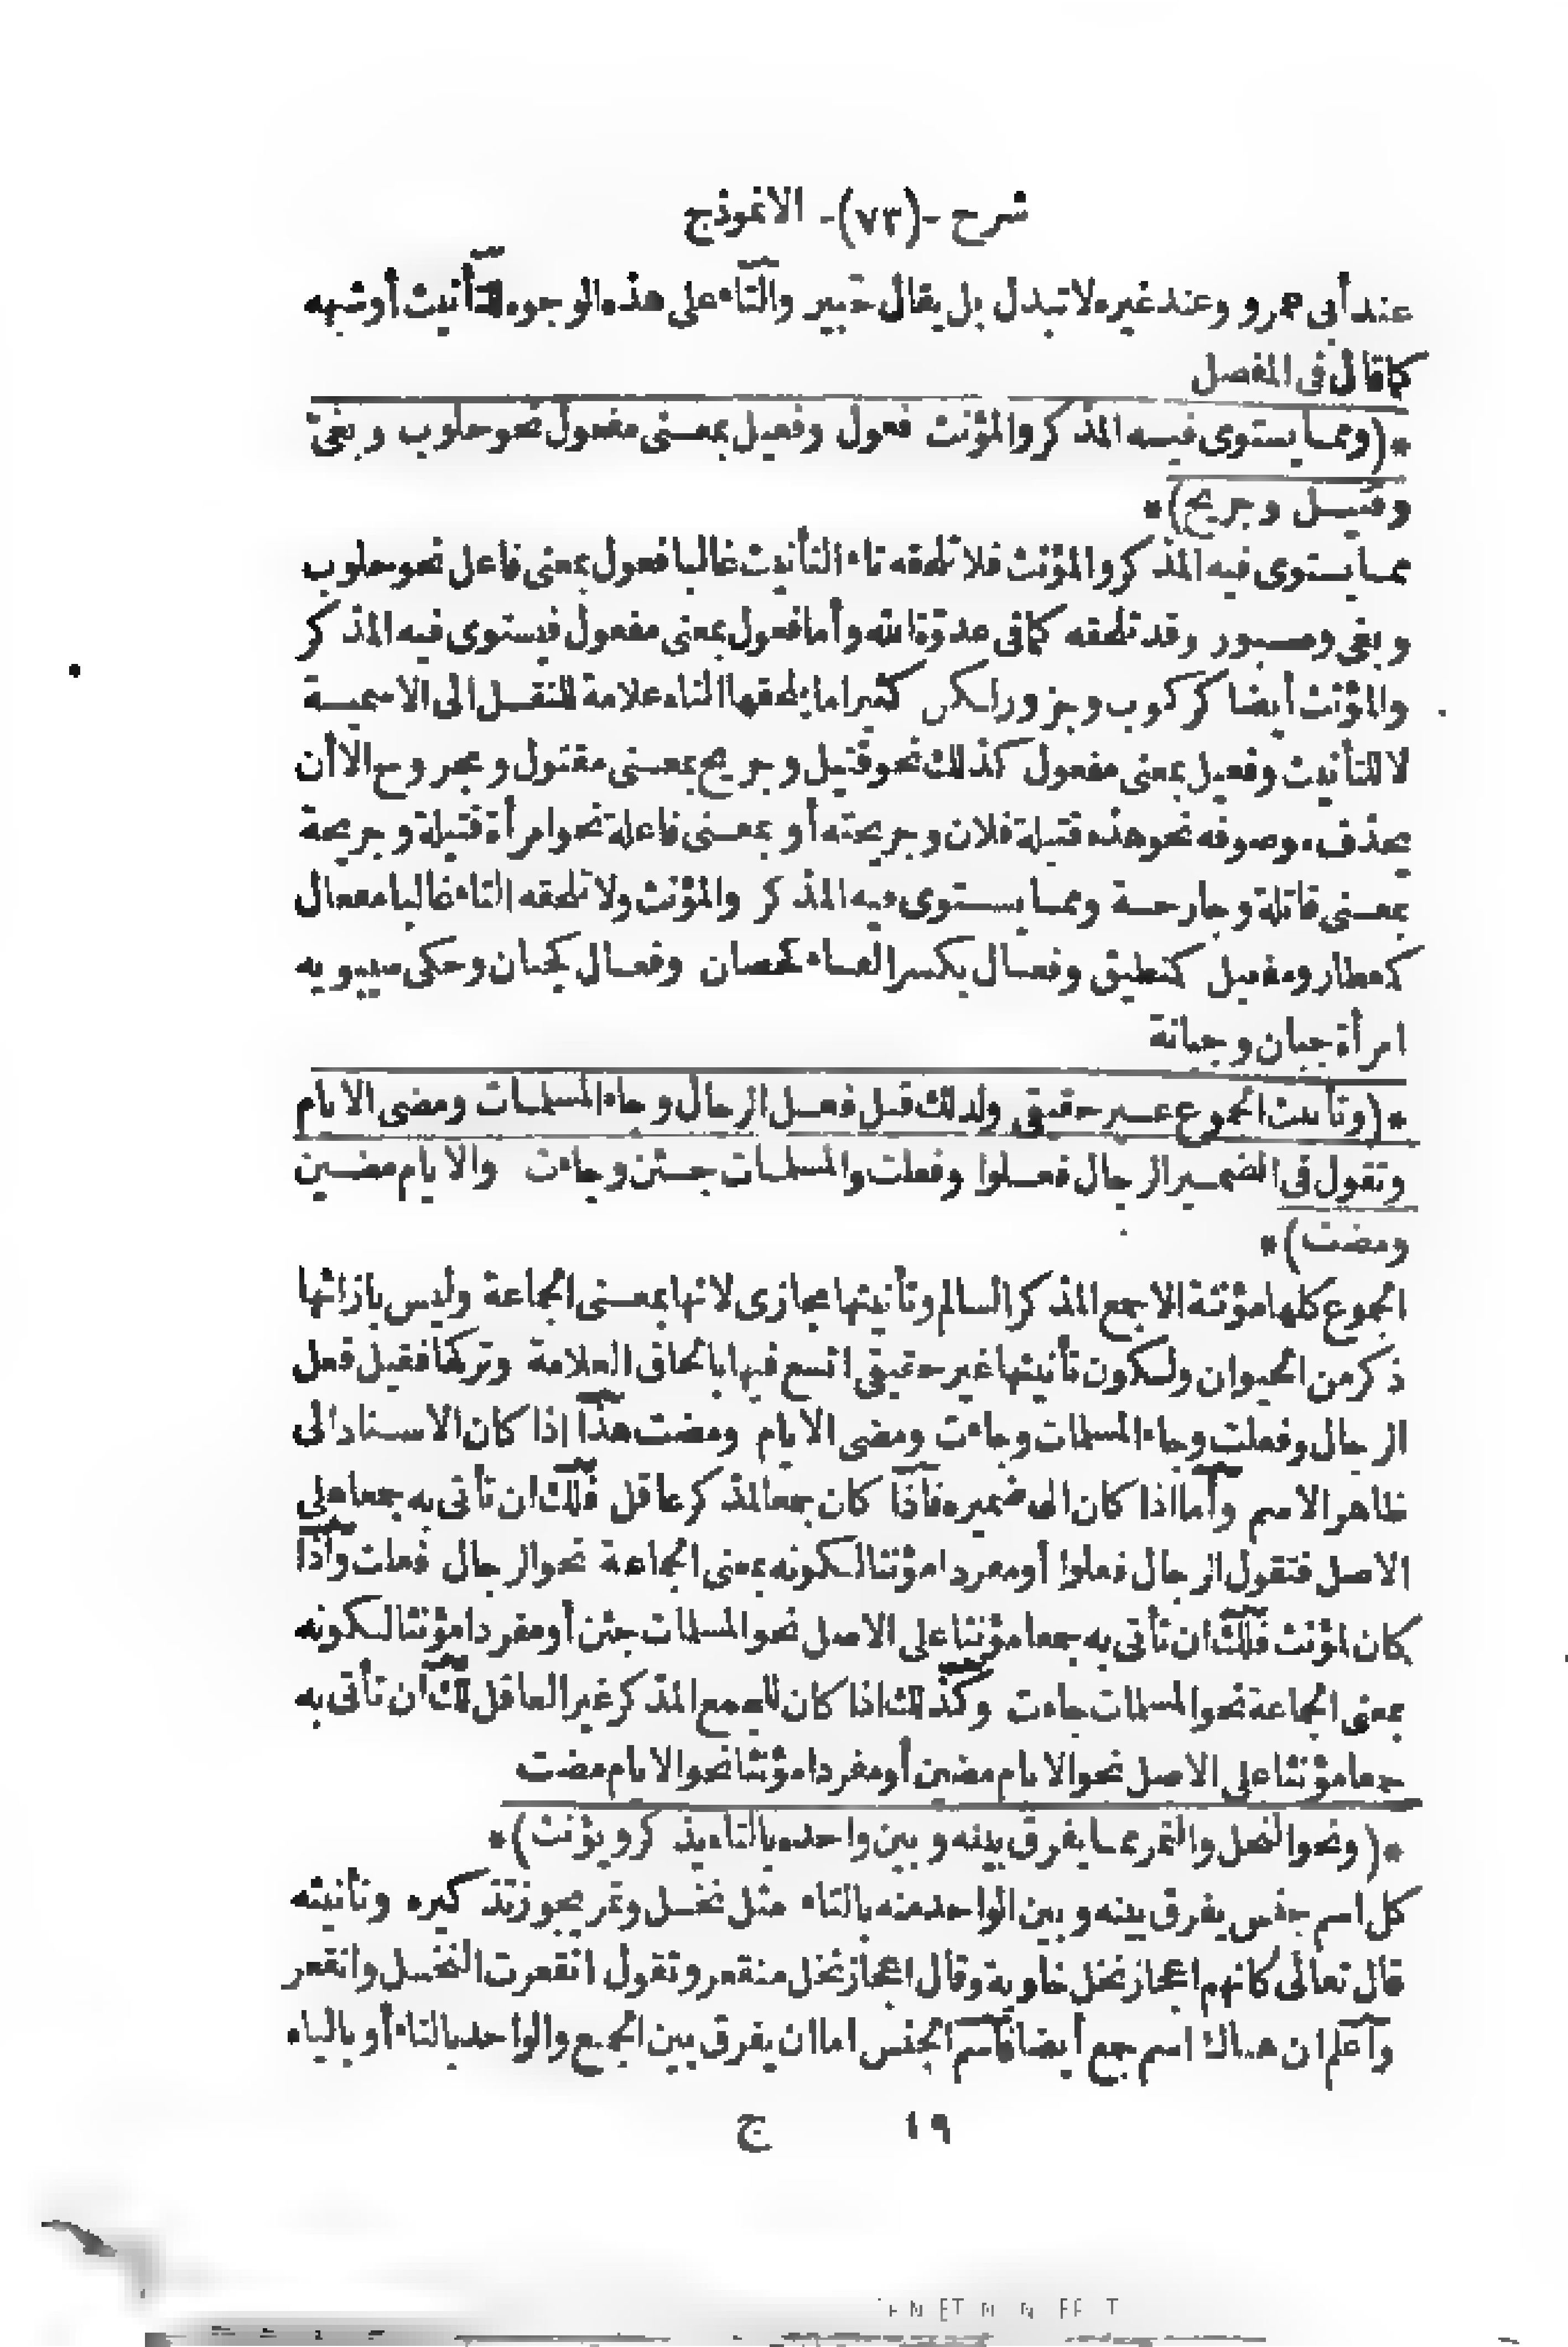 شرح -(٧٣)- الانموذج
عند أبى عمرو وعند غيره لا تبدل بل يقال حبير والتاء على هذه الوجوه للتأنيث أو شبهه
كما قال فى المفصل
*(ومما يستوى فيه المذكر والمؤنث فعول وفعيل بمعنى مفعول نحو حلوب وبغى
وقتيل وجريح)*
مما يستوى فيه المذكر والمؤنث فلا تلحقه تاء التأنيث غالبا فعول بمعنى فاعل نحو حلوب
وبغى وصبور وقد تلحقه كما فى عدوة الله وأما فعول بمعنى مفعول فيستوى فيه المذكر
والمؤنث أيضا كركوب وجزور لكن كثيرا ما يلحقها التاء علامة للنقل الى الاسمية
لا للتأنيث وفعيل بمعنى مفعول كذلك نحو قتيل وجريح بمعنى مقتول ومجروح الا أن
يحذف موصوفه نحو هذه قتيلة فلان وجريحته أو بمعنى فاعلة نحو امرأة قتيلة وجريحة
بمعنى قاتلة وجارحة ومما يستوى فيه المذكر والمؤنث ولا تلحقه التاء غالبا مفعال
كمعطار ومفعيل كمنطيق وفعال بكسر الفاء كحصان وفعال كجبان وحكى سيبويه
امرأة جبان وجبانة
*(وتأنيث الجموع غير حقيقى ولذلك قيل فعل الرجال وجاء المسلمات ومضى الايام
وتقول فى الضمير الرجال فعلوا وفعلت والمسلمات جئن وجاءت والايام مضين
ومضت)*
الجموع كلها مؤنثة الا جمع المذكر السالم وتأنيثها مجازى لانها بمعنى الجماعة وليس بازائها
ذكر من الحيوان ولكون تأنيثها غير حقيقى اتسع فيها بالحاق العلامة وتركها فقيل فعل
الرجال وفعلت وجاء المسلمات وجاءت ومضى الايام ومضت هذا اذا كان الاسناد الى
ظاهر الاسم وأما اذا كان الى ضميره فاذا كان جمعا لمذكر عاقل فلك ان تأتى به جمعا على
الاصل فتقول الرجال فعلوا أو مفردا مؤنثا لكونه بمعنى الجماعة نحو الرجال فعلت واذا
كان لمؤنث فلك ان تأتى به جمعا مؤنثا على الاصل نحو المسلمات جئن أو مفردا مؤنثا لكونه
بمعنى الجماعة نحو المسلمات جاءت وكذلك اذا كان للجمع المذكر غير العاقل لك ان تأتى به
جمعا مؤنثا على الاصل نحو الايام مضين أو مفردا مؤنثا نحو الايام مضت
*(ونحو النخل والتمر مما يفرق بينه وبين واحده بالتاء يذكر ويؤنث)*
كل اسم جنس يفرق بينه وبين الواحد منه بالتاء مثل نخل وتمر يجوز تذكيره وتأنيثه
قال تعالى كانهم اعجاز نخل خاوية وقال اعجاز نخل منقعر وتقول انقعرت النخل وانقعر
واعلم ان هناك اسم جمع أيضا فاسم الجنس اما ان يفرق بين الجمع والواحد بالتاء أو بالياء
١٩ ج